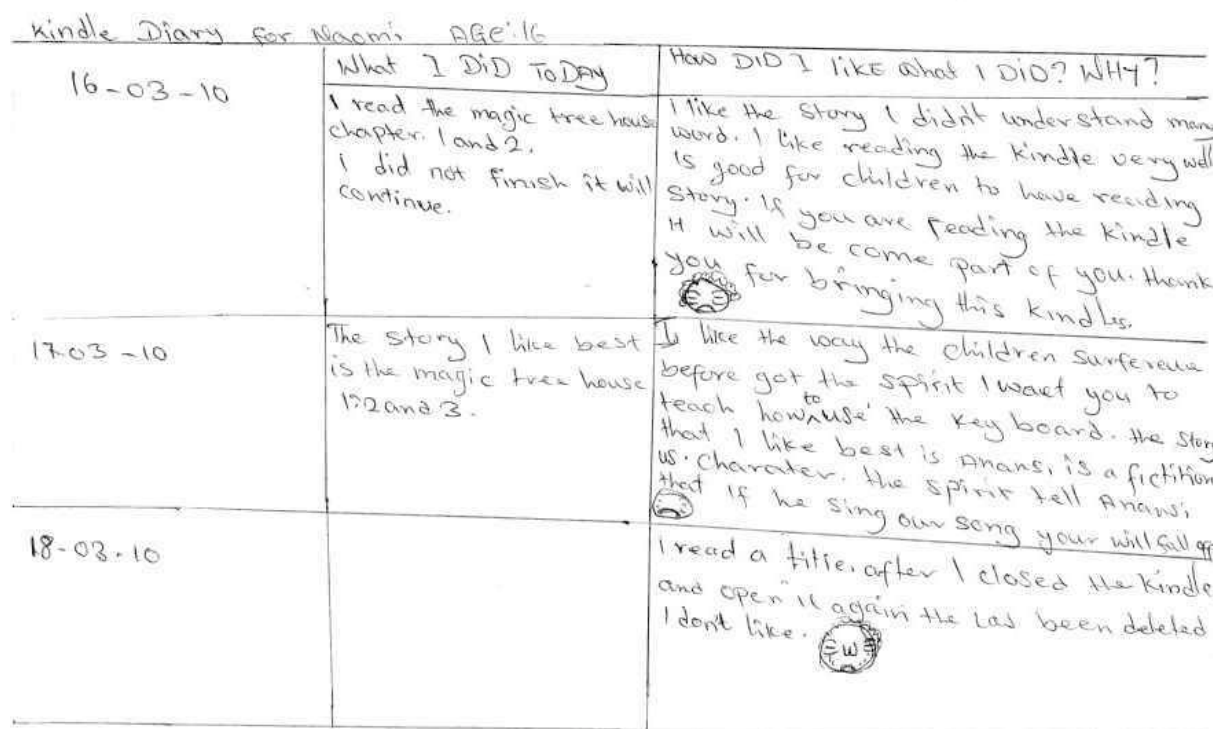 Kindle Diary for Naomi AGe:16
What I DiD ToDAY
How DiD I like what I DiD? WHY?
16-03-10
I read the magic tree house
chapter. 1 and 2.
I did not finish it will
continue.
I like the story I didn't understand many
word. I like reading the Kindle very well
Is good for children to have reading
story. If you are reading the Kindle
it will be come part of you. thank
you for bringing this kindles.
17-03-10
The story I like best
is the magic tree house
1:2 and 3.
I like the way the children
before got the spirit I want you to
teach how to use the key board. the story
that I like best is Anansi is a fiction
us. Charater. the spirit tell Anansi
that if he sing our song your will fall off
18-03-10
I read a title. after I closed the Kindle
and open it again the has been deleted
I don't like.
W